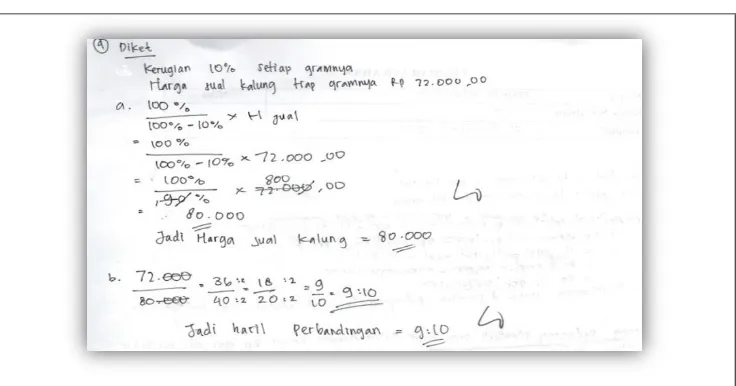 ④ Diket
Kerugian 10% setiap gramnya
Harga jual kalung tiap gramnya Rp 72.000,00
a. 100 % / 100% - 10% × H jual
= 100 % / 100% - 10% × 72.000,00
= 100% / 90 % × 72.000,00 800
= 80.000
Jadi Harga jual kalung = 80.000
b. 72.000 / 80.000 = 36 :2 / 40 :2 = 18 :2 / 20 :2 = 9 / 10 = 9:10
Jadi hasil perbandingan = 9:10